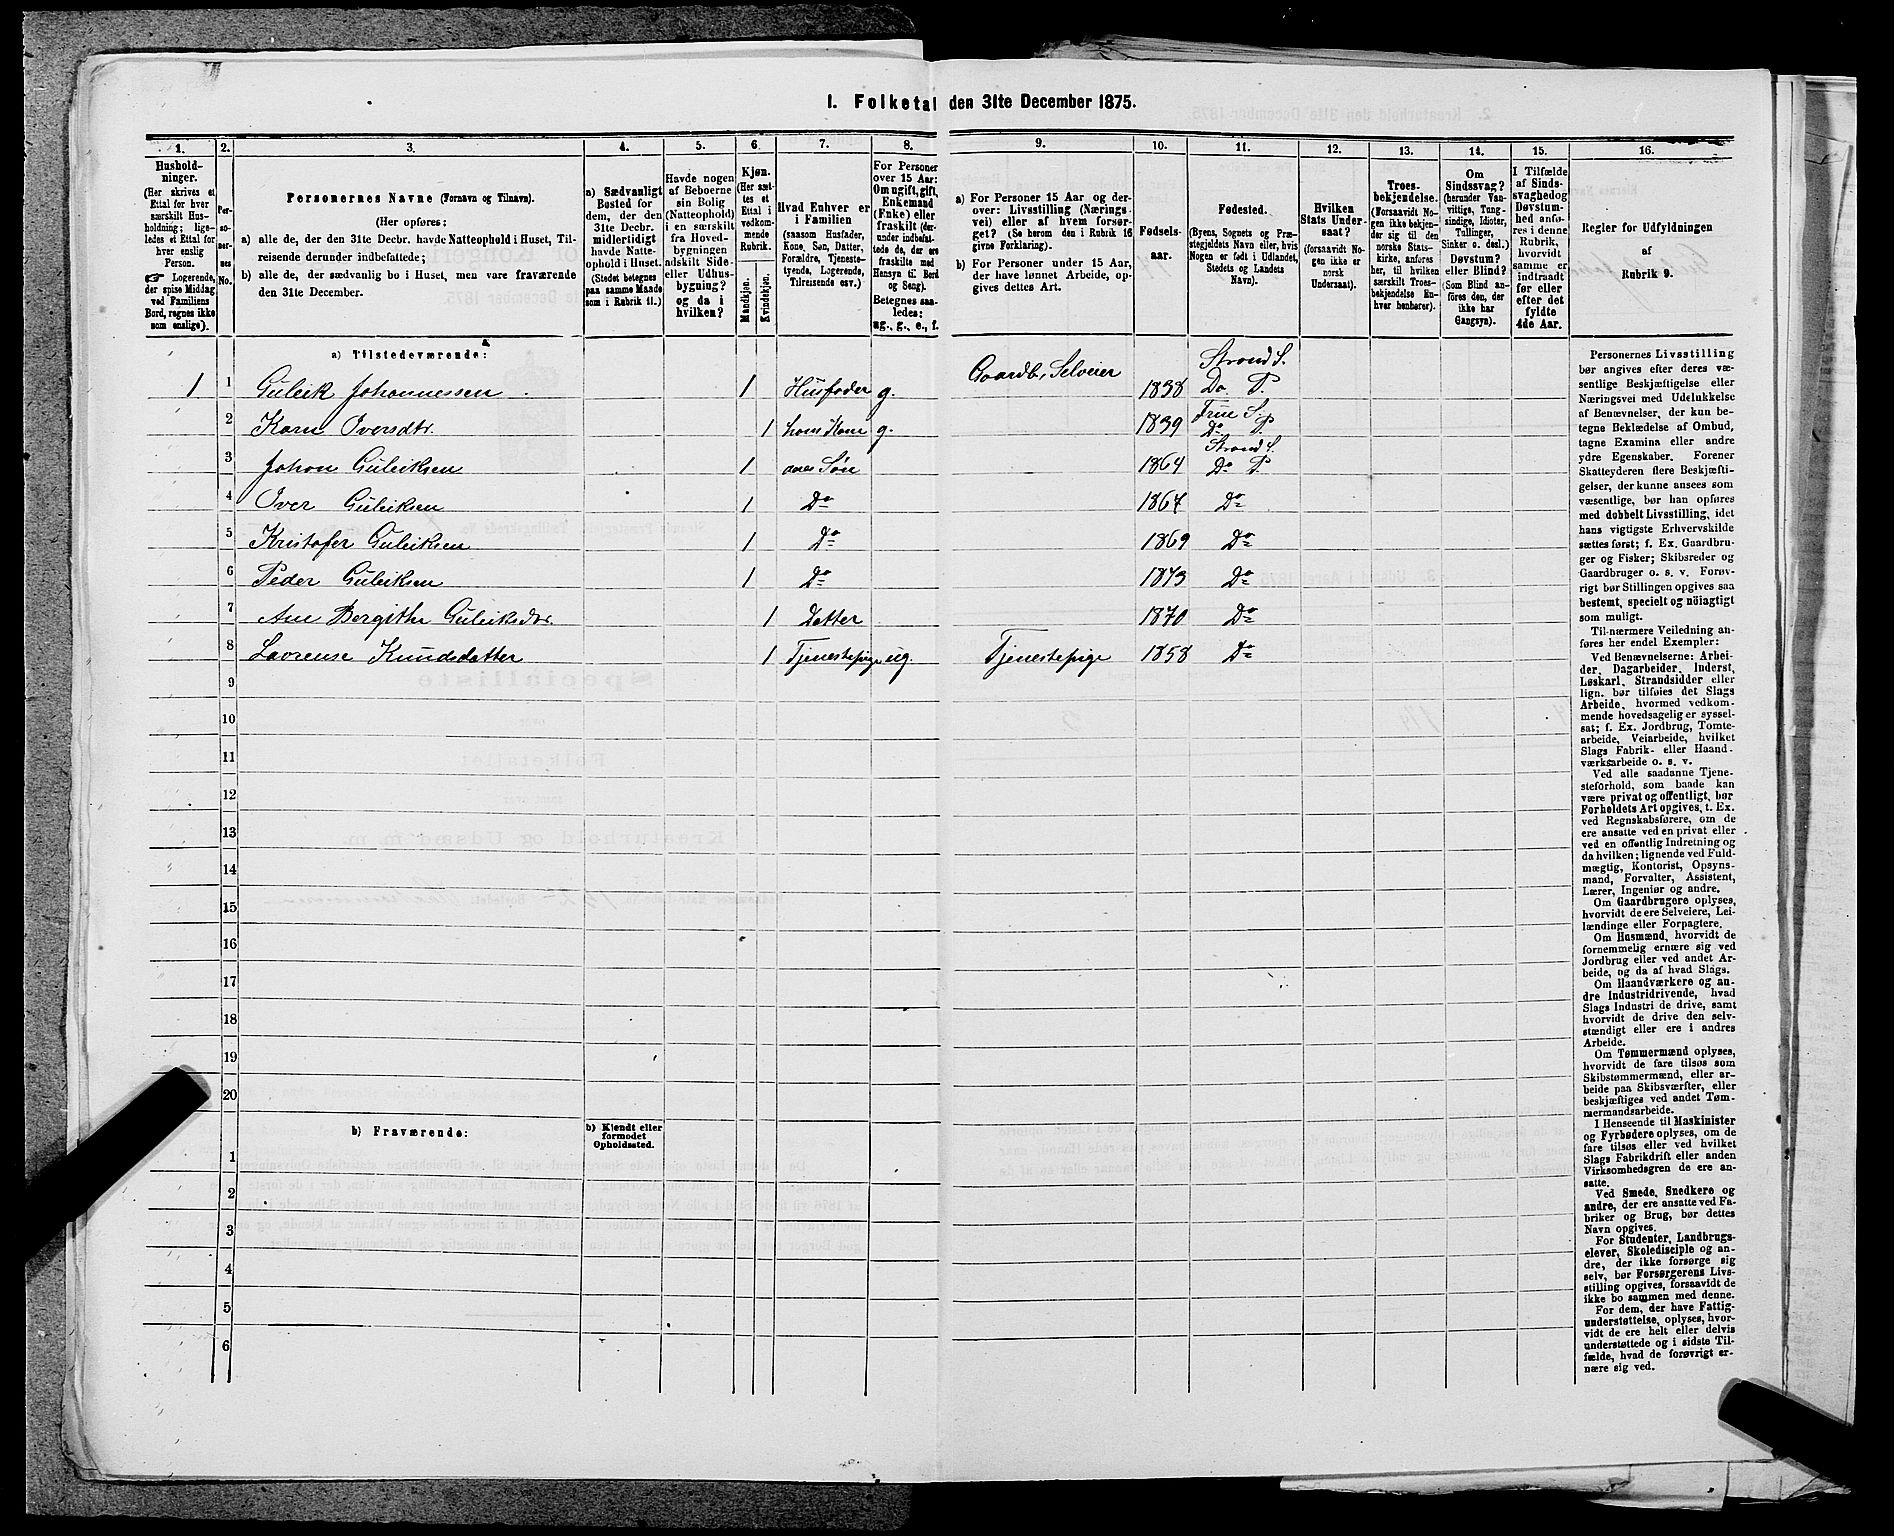 1. Folketal den 31te December 1875.
1. 2. 3. 4. 5. 6. 7. 8. 9. 10. 11. 12. 13. 14. 15. 16.
Hushold-
ninger.
(Her skrives et
Ettal for hver
særskilt Hus-
holdning; lige-
ledes et Ettal for
hver enslig
Person.
Logerende,
der spise Middag
ved Familiens
Bord, regnes ikke
som enslige).
Per-
so-
ner-
nes
No.
Personernes Navne (Fornavn og Tilnavn).
(Her opføres:
a) alle de, der den 31te Decbr. havde Natteophold i Huset, Til-
reisende derunder indbefattede;
b) alle de, der sædvanlig bo i Huset, men vare fraværende
den 31te December.
a) Sædvanligt
Bosted for
dem, der den
31te Decbr.
midlertidigt
havde Natte-
ophold i Huset.
(Stedet betegnes
paa samme Maade
som i Rubrik 11.)
Havde nogen
af Beboerne
sin Bolig
(Natteophold)
i en særskilt
fra Hoved-
bygningen
adskilt Side-
eller Udhus-
bygning?
og da i
hvilken?
Kjøn.
(Her sæt-
tes et
Ettal i
vedkom-
mende
Rubrik.
Mandkjøn.
Kvindekjøn.
Hvad Enhver er
i Familien
(saasom Husfader,
Kone, Søn, Datter,
Forældre, Tjeneste-
tyende, Logerende,
Tilreisende osv.)
For Personer
over 15 Aar:
Om ugift, gift,
Enkemand
(Enke) eller
fraskilt (der-
under indbefat-
tede de, der ere
fraskilte med
Hensyn til Bord
og Seng).
Betegnes saa-
ledes:
ug., g., e., f.
a) For Personer 15 Aar og der-
over: Livsstilling (Nærings-
vei) eller af hvem forsør-
get? (Se herom den i Rubrik 16
givne Forklaring).
b) For Personer under 15 Aar,
der have lønnet Arbeide, op-
gives dettes Art.
Fødsels-
aar.
Fødested.
(Byens, Sognets og Præ-
stegjeldets Navn eller, hvis
Nogen er født i Udlandet,
Stedets og Landets
Navn).
Hvilken
Stats Under-
saat?
(forsaavidt No-
gen ikke er
norsk
Undersaat).
Troes-
bekjendelse.
(Forsaavidt No-
gen ikke bekjen-
der sig til den
norske Stats-
kirke, anføres
her, til hvilken
særskilt Troes-
bekjendelse En-
hver henhører).
Om
Sindssvag?
(herunder Van-
vittige, Tung-
sindige, Idioter,
Tullinger,
Sinker o. desl.)
Døvstum?
eller Blind?
(Som Blind an-
føres den, der
ikke har
Gangsyn).
I Tilfælde
af Sinds-
svaghed og
Døvstum-
hed anfø-
res i denne
Rubrik,
hvorvidt
samme er
indtraadt
før eller
efter det
fyldte
4de Aar.
Regler for Udfyldningen
af
Rubrik 9.
a) Tilstedeværende:
1 1 Guleik Johannessen 1 Husfader g. Gaardb, Selveier 1838 Strand S. Do P.
2 Karn Oversdtr. 1 hans Kone g. 1839 True S. Do P.
3 Johan Guleiksen 1 deres Søn 1864 Strand S. Do P.
4 Over Guleiksen 1 Do 1867 Do
5 Kristofer Guleiksen 1 Do 1869 Do
6 Peder Guleiksen 1 Do 1873 Do
7 Ane Bergithe Guleiksdtr. 1 Datter 1870 Do
8 Lavrense Knudsdatter 1 Tjenestepige ug. Tjenestepige 1858 Do
9
10
11
12
13
14
15
16
17
18
19
20
b) Fraværende:
b) Kjendt eller
formodet
Opholdssted.
1
2
3
4
5
6
Personernes Livsstilling
bør angives efter deres væ-
sentlige Beskjæftigelse eller
Næringsvei med Udelukkelse
af Benævnelser, der kun be-
tegne Beklædelse af Ombud,
tagne Examina eller andre
ydre Egenskaber. Forener
Skatteyderen flere Beskjæfti-
gelser, der kunne ansees som
væsentlige, bør han opføres
med dobbelt Livsstilling, idet
hans vigtigste Erhvervskilde
sættes først; f. Ex. Gaardbru-
ger og Fisker; Skibsreder og
Gaardbruger o. s. v. Forøv-
rigt bør Stillingen opgives saa
bestemt, specielt og nøiagtigt
som muligt.
Til nærmere Veiledning an-
føres her endel Exempler:
Ved Benævnelserne: Arbei-
der, Dagarbeider, Inderst,
Løskarl, Strandsidder eller
lign. bør tilføies det Slags
Arbeide, hvormed vedkom-
mende hovedsagelig er syssel-
sat; f. Ex. Jordbrug, Tomte-
arbeide, Veiarbeide, hvilket
Slags Fabrik- eller Haand-
værksarbeide o. s. v.
Ved alle saadanne Tjene-
steforhold, som baade kan
være privat og offentligt, bør
Forholdets Art opgives, t. Ex.
ved Regnskabsførere, om de
ere ansatte ved en privat eller
ved en offentlig Indretning og
da hvilken; lignende ved Fuld-
mægtig, Kontorist, Opsyns-
mand, Forvalter, Assistent,
Lærer, Ingeniør og andre.
Om Gaardbrugere oplyses,
hvorvidt de ere Selveiere, Lei-
lændinge eller Forpagtere.
Om Husmænd, hvorvidt de
fornemmelig ernære sig ved
Jordbrug eller ved andet Ar-
beide, og da af hvad Slags.
Om Haandværkere og an-
dre Industridrivende, hvad
Slags Industri de drive, samt
hvorvidt de drive den selv-
stændigt eller ere i andres
Arbeide.
Om Tømmermænd oplyses,
hvorvidt de fare tilsøs som
Skibstømmermænd, eller ar-
beide paa Skibsværfter, eller
beskjæftiges ved andet Tøm-
mermandsarbeide.
I Henseende til Maskinister
og Fyrbødere oplyses, om de
fare tilsøs eller ved hvilket
Slags Fabrikdrift eller anden
Virksomhedsgren de ere an-
satte.
Ved Smede, Snedkere og
andre, der ere ansatte ved Fa-
briker og Brug, bør dettes
Navn opgives.
For Studenter, Landbrugs-
elever, Skoledisciple og an-
dre, der ikke forsørge sig
selv, bør Forsørgerens Livs-
stilling opgives, forsaavidt de
ikke bo sammen med denne.
For dem, der have Fattig-
understøttelse, oplyses, hvor-
vidt de ere helt eller delvis
understøttede og i sidste Til-
fælde, hvad de forøvrigt er-
nære sig ved.